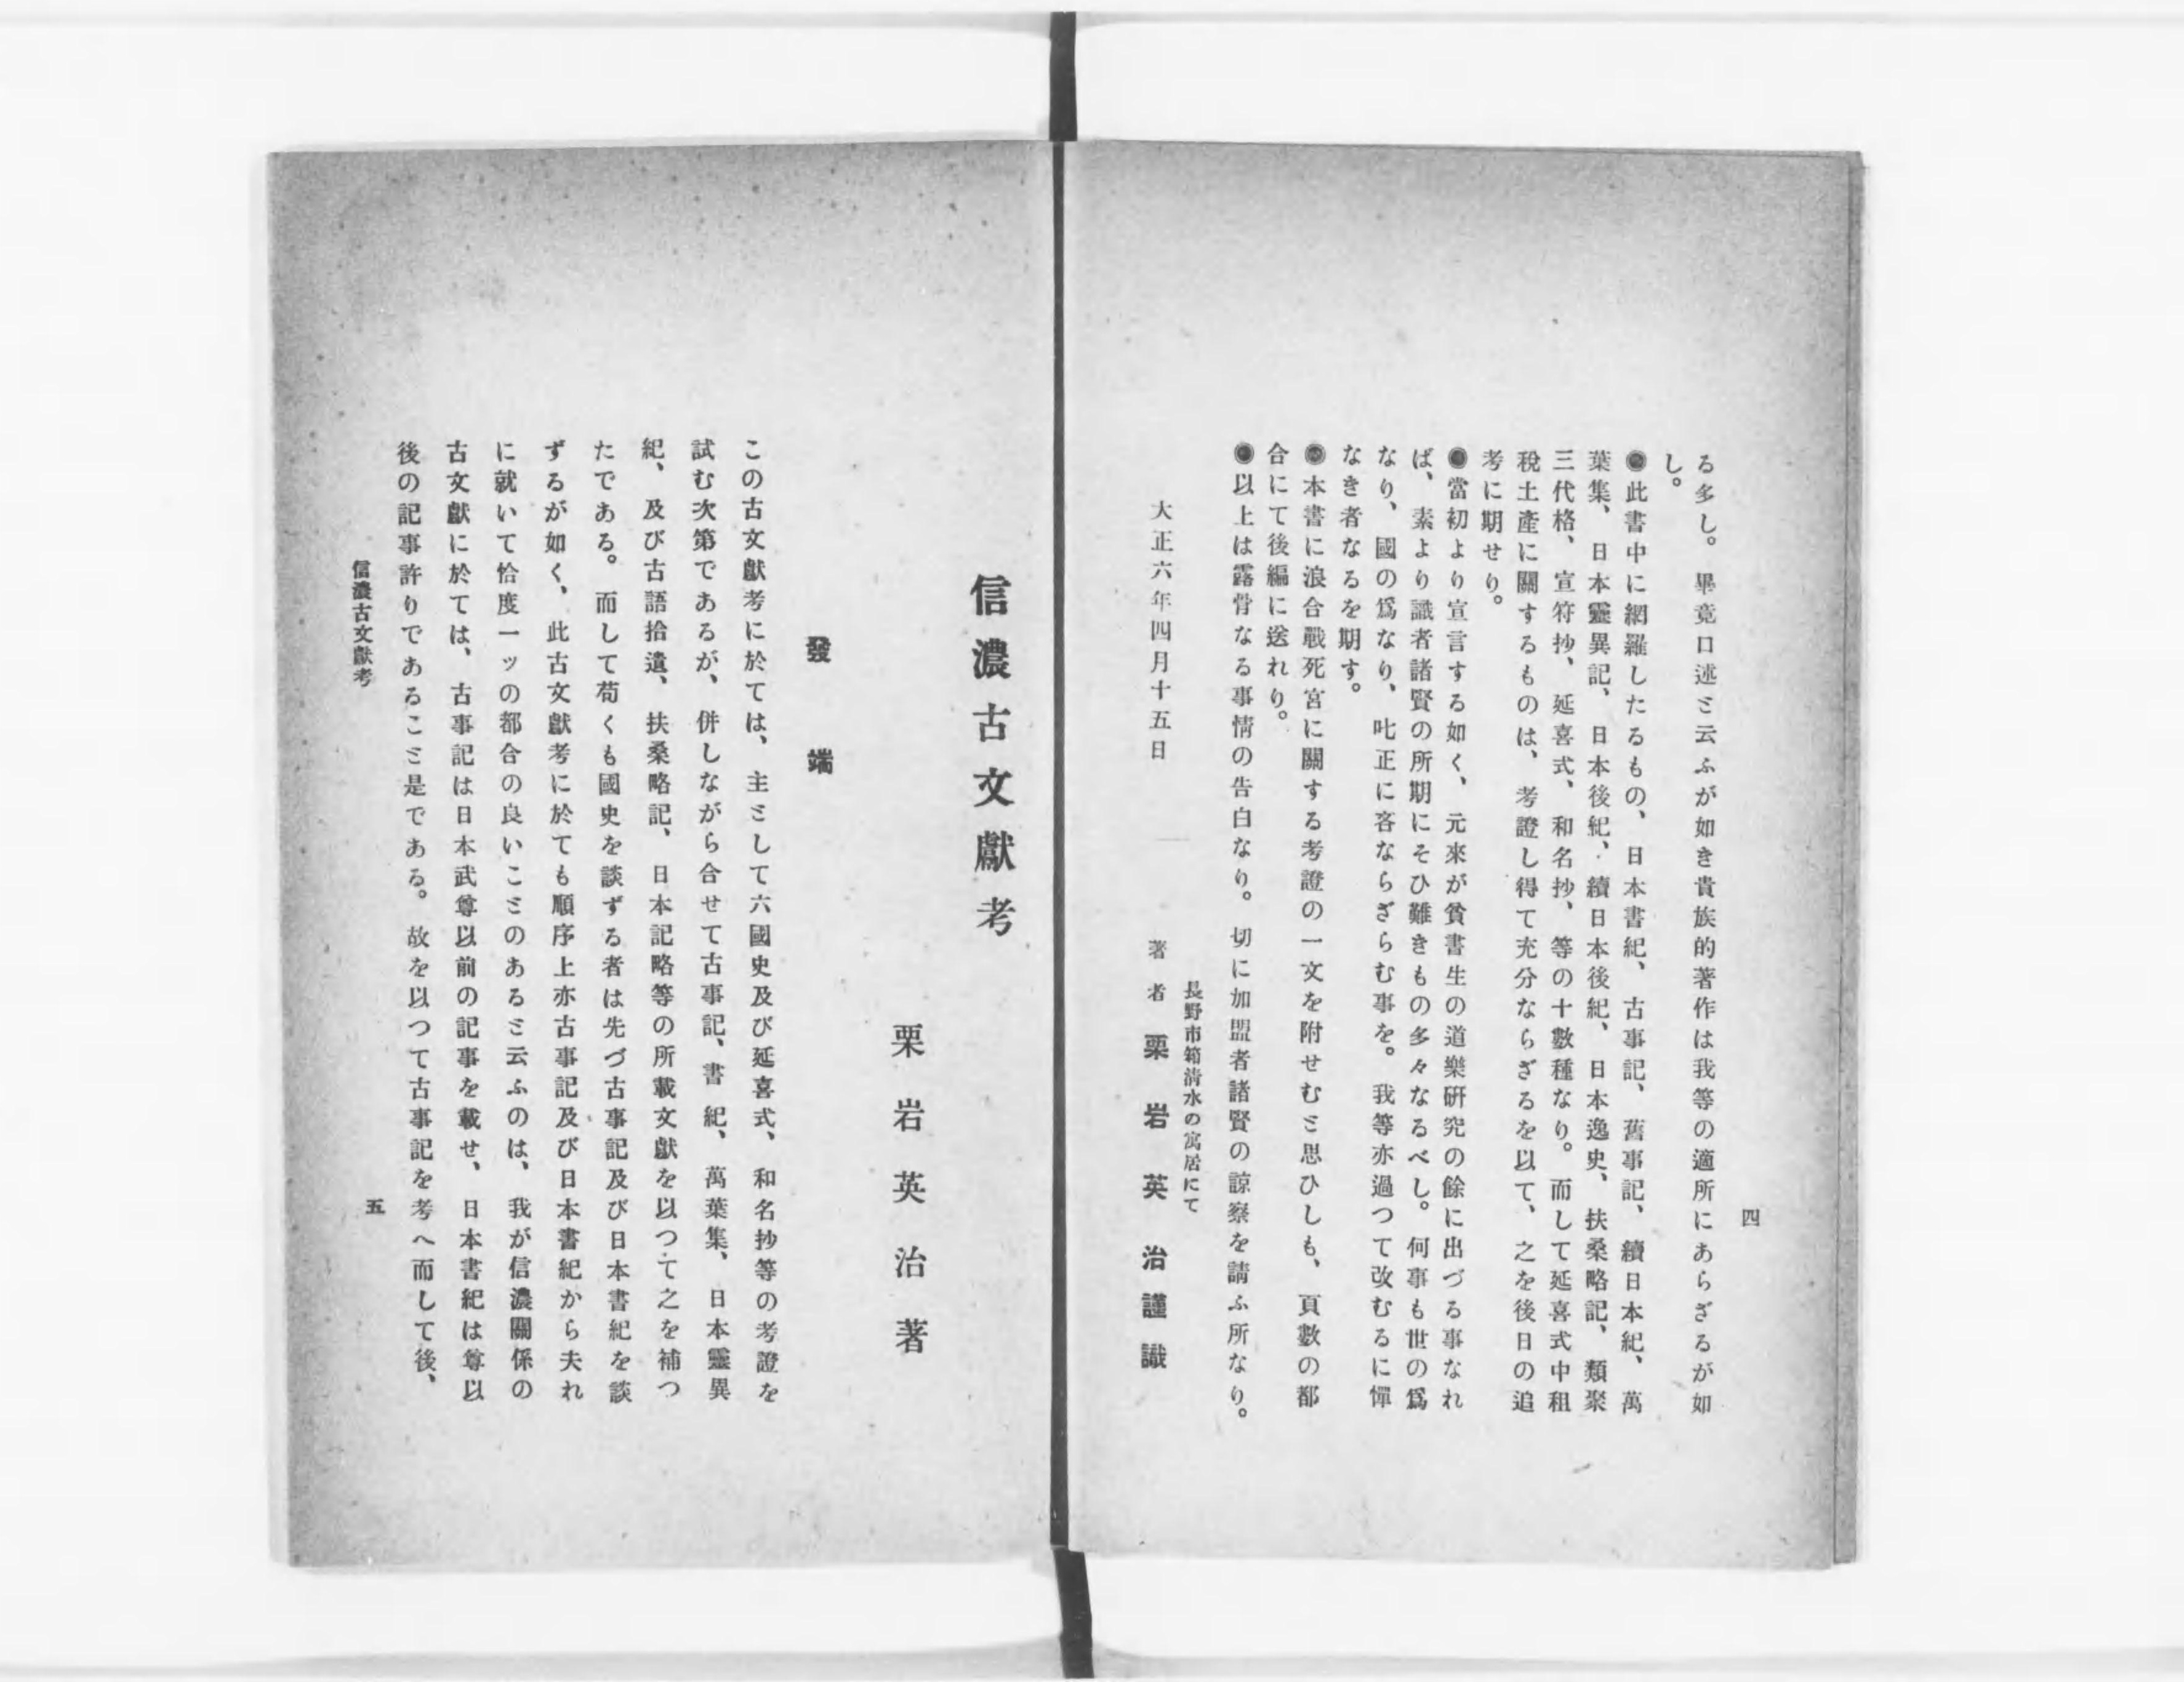 四
る多し。畢竟口述ミ云ふが如き貴族的著作は我等の適所にあらざるが如
し。
◉此書中に網羅したるもの、日本書紀、古事記、舊事記、續日本紀、萬
葉集、日本靈異記、日本後紀、續日本後紀、日本逸史、扶桑略記、類聚
三代格、宣符抄、延喜式、和名抄、等の十數種なり。而して延喜式中租
税土產に關するものは、考證し得て充分ならざるを以て、之を後日の追
考に期せり。
◉當初より宣言する如く、元來が貧書生の道樂研究の餘に出づる事なれ
ば、素より識者諸賢の所期にそひ難きもの多々なるべし。何事も世の爲
なり、國の爲なり、叱正に吝ならざらむ事を。我等亦過つて改むるに憚
なき者なるを期す。
◉本書に浪合戰死宮に關する考證の一文を附せむミ思ひしも、頁數の都
合にて後編に送れり。
◉以上は露骨なる事情の告白なり。切に加盟者諸賢の諒察を請ふ所なり。
大正六年四月十五日
長野市箱清水の寓居にて
著者 栗岩英治謹識
信濃古文獻考
栗岩英治著
發端
この古文獻考に於ては、主ミして六國史及び延喜式、和名抄等の考證を
試む次第であるが、併しながら合せて古事記、書紀、萬葉集、日本靈異
紀、及び古語拾遺、扶桑略記、日本記略等の所載文獻を以つて之を補つ
たである。而して苟くも國史を談ずる者は先づ古事記及び日本書紀を談
ずるが如く、此古文獻考に於ても順序上亦古事記及び日本書紀から夫れ
に就いて恰度一ッの都合の良いこミのあるミ云ふのは、我が信濃關係の
古文獻に於ては、古事記は日本武尊以前の記事を載せ、日本書紀は尊以
後の記事許りであるこミ是である。故を以つて古事記を考へ而して後、
信濃古文獻考
五